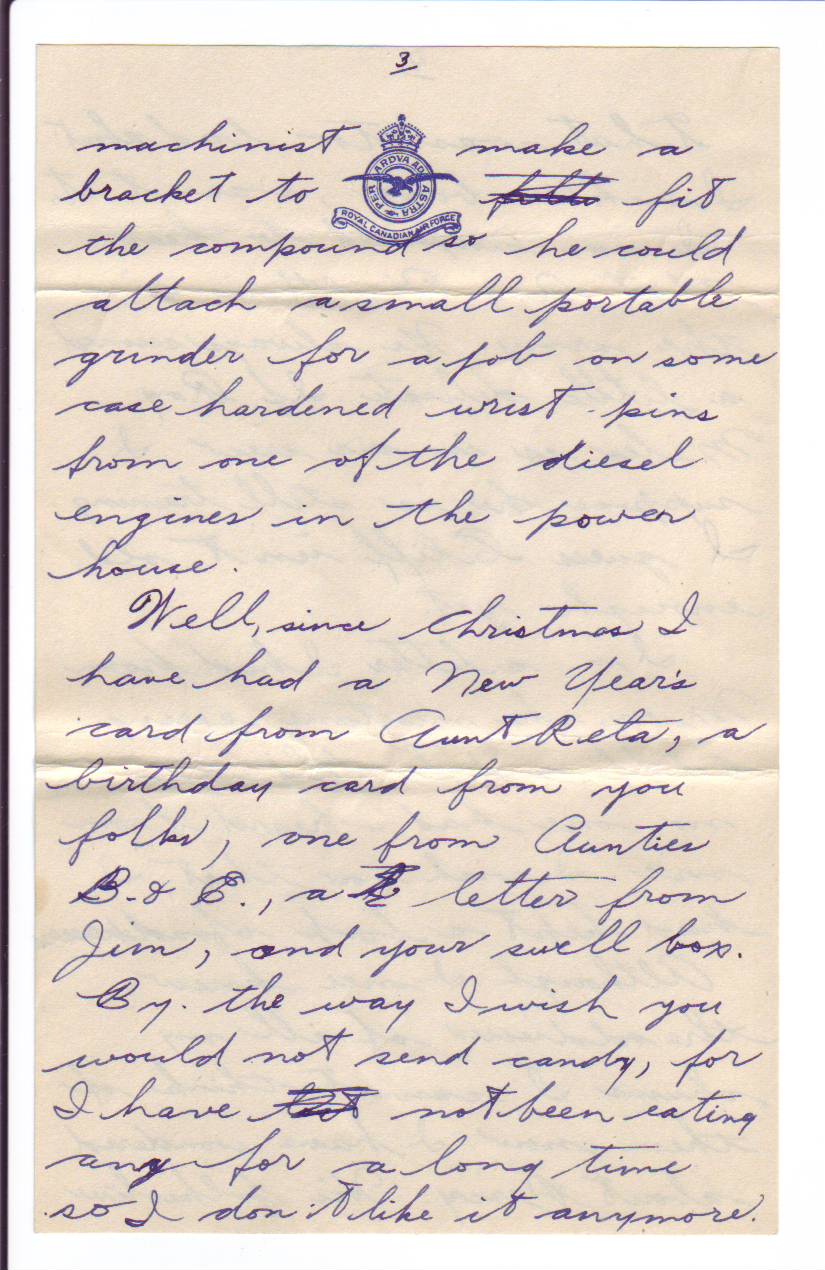 3
PER ARDVA AD ASTRA
ROYAL CANADIAN AIR FORCE
machinist make a
bracket to fit
the compound so he could
attach a small portable
grinder for a job on some
case hardened wrist-pins
from one of the diesel
engines in the power
house.
Well, since Christmas I
have had a New Year's
card from Aunt Reta, a
birthday card from you
folks, one from Aunties
B. & E., a letter from
Jim, and your swell box.
By. the way I wish you
would not send candy, for
I have not been eating
any for a long time
so I don't like it anymore.